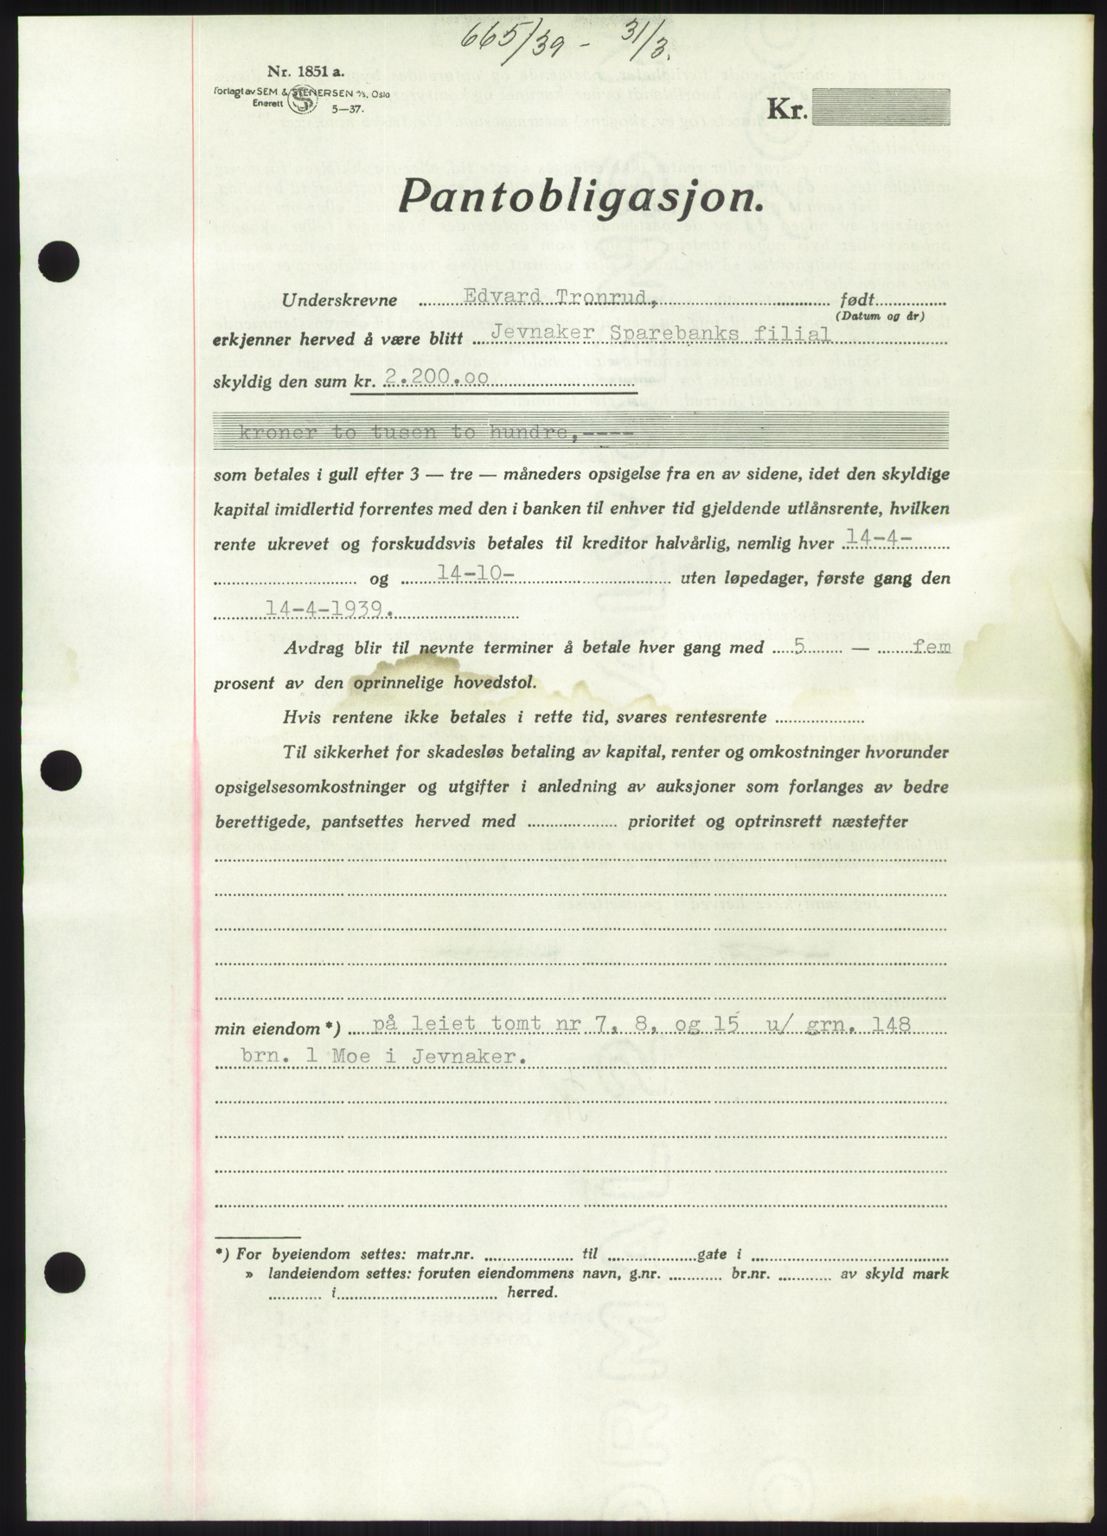 665/39 - 31/3.
Nr. 1851 a.
Forlagt av SEM & STENERSEN A/S, Oslo
Enerett 5—37.
Kr.
Pantobligasjon.
Underskrevne Edvard Tronrud, født
(Datum og år)
erkjenner herved å være blitt Jevnaker Sparebanks filial
skyldig den sum kr. 2.200.00
kroner to tusen to hundre,----
som betales i gull efter 3 — tre — måneders opsigelse fra en av sidene, idet den skyldige
kapital imidlertid forrentes med den i banken til enhver tid gjeldende utlånsrente, hvilken
rente ukrevet og forskuddsvis betales til kreditor halvårlig, nemlig hver 14-4-
og 14-10- uten løpedager, første gang den
14-4-1939.
Avdrag blir til nevnte terminer å betale hver gang med 5 — fem
prosent av den oprinnelige hovedstol.
Hvis rentene ikke betales i rette tid, svares rentesrente
Til sikkerhet for skadesløs betaling av kapital, renter og omkostninger hvorunder
opsigelsesomkostninger og utgifter i anledning av auksjoner som forlanges av bedre
berettigede, pantsettes herved med prioritet og optrinsrett næstefter
min eiendom *) på leiet tomt nr 7, 8, og 15 u/ grn. 148
brn. 1 Moe i Jevnaker.
*) For byeiendom settes: matr.nr. til gate i
» landeiendom settes: foruten eiendommens navn, g.nr. br.nr. av skyld mark
i herred.